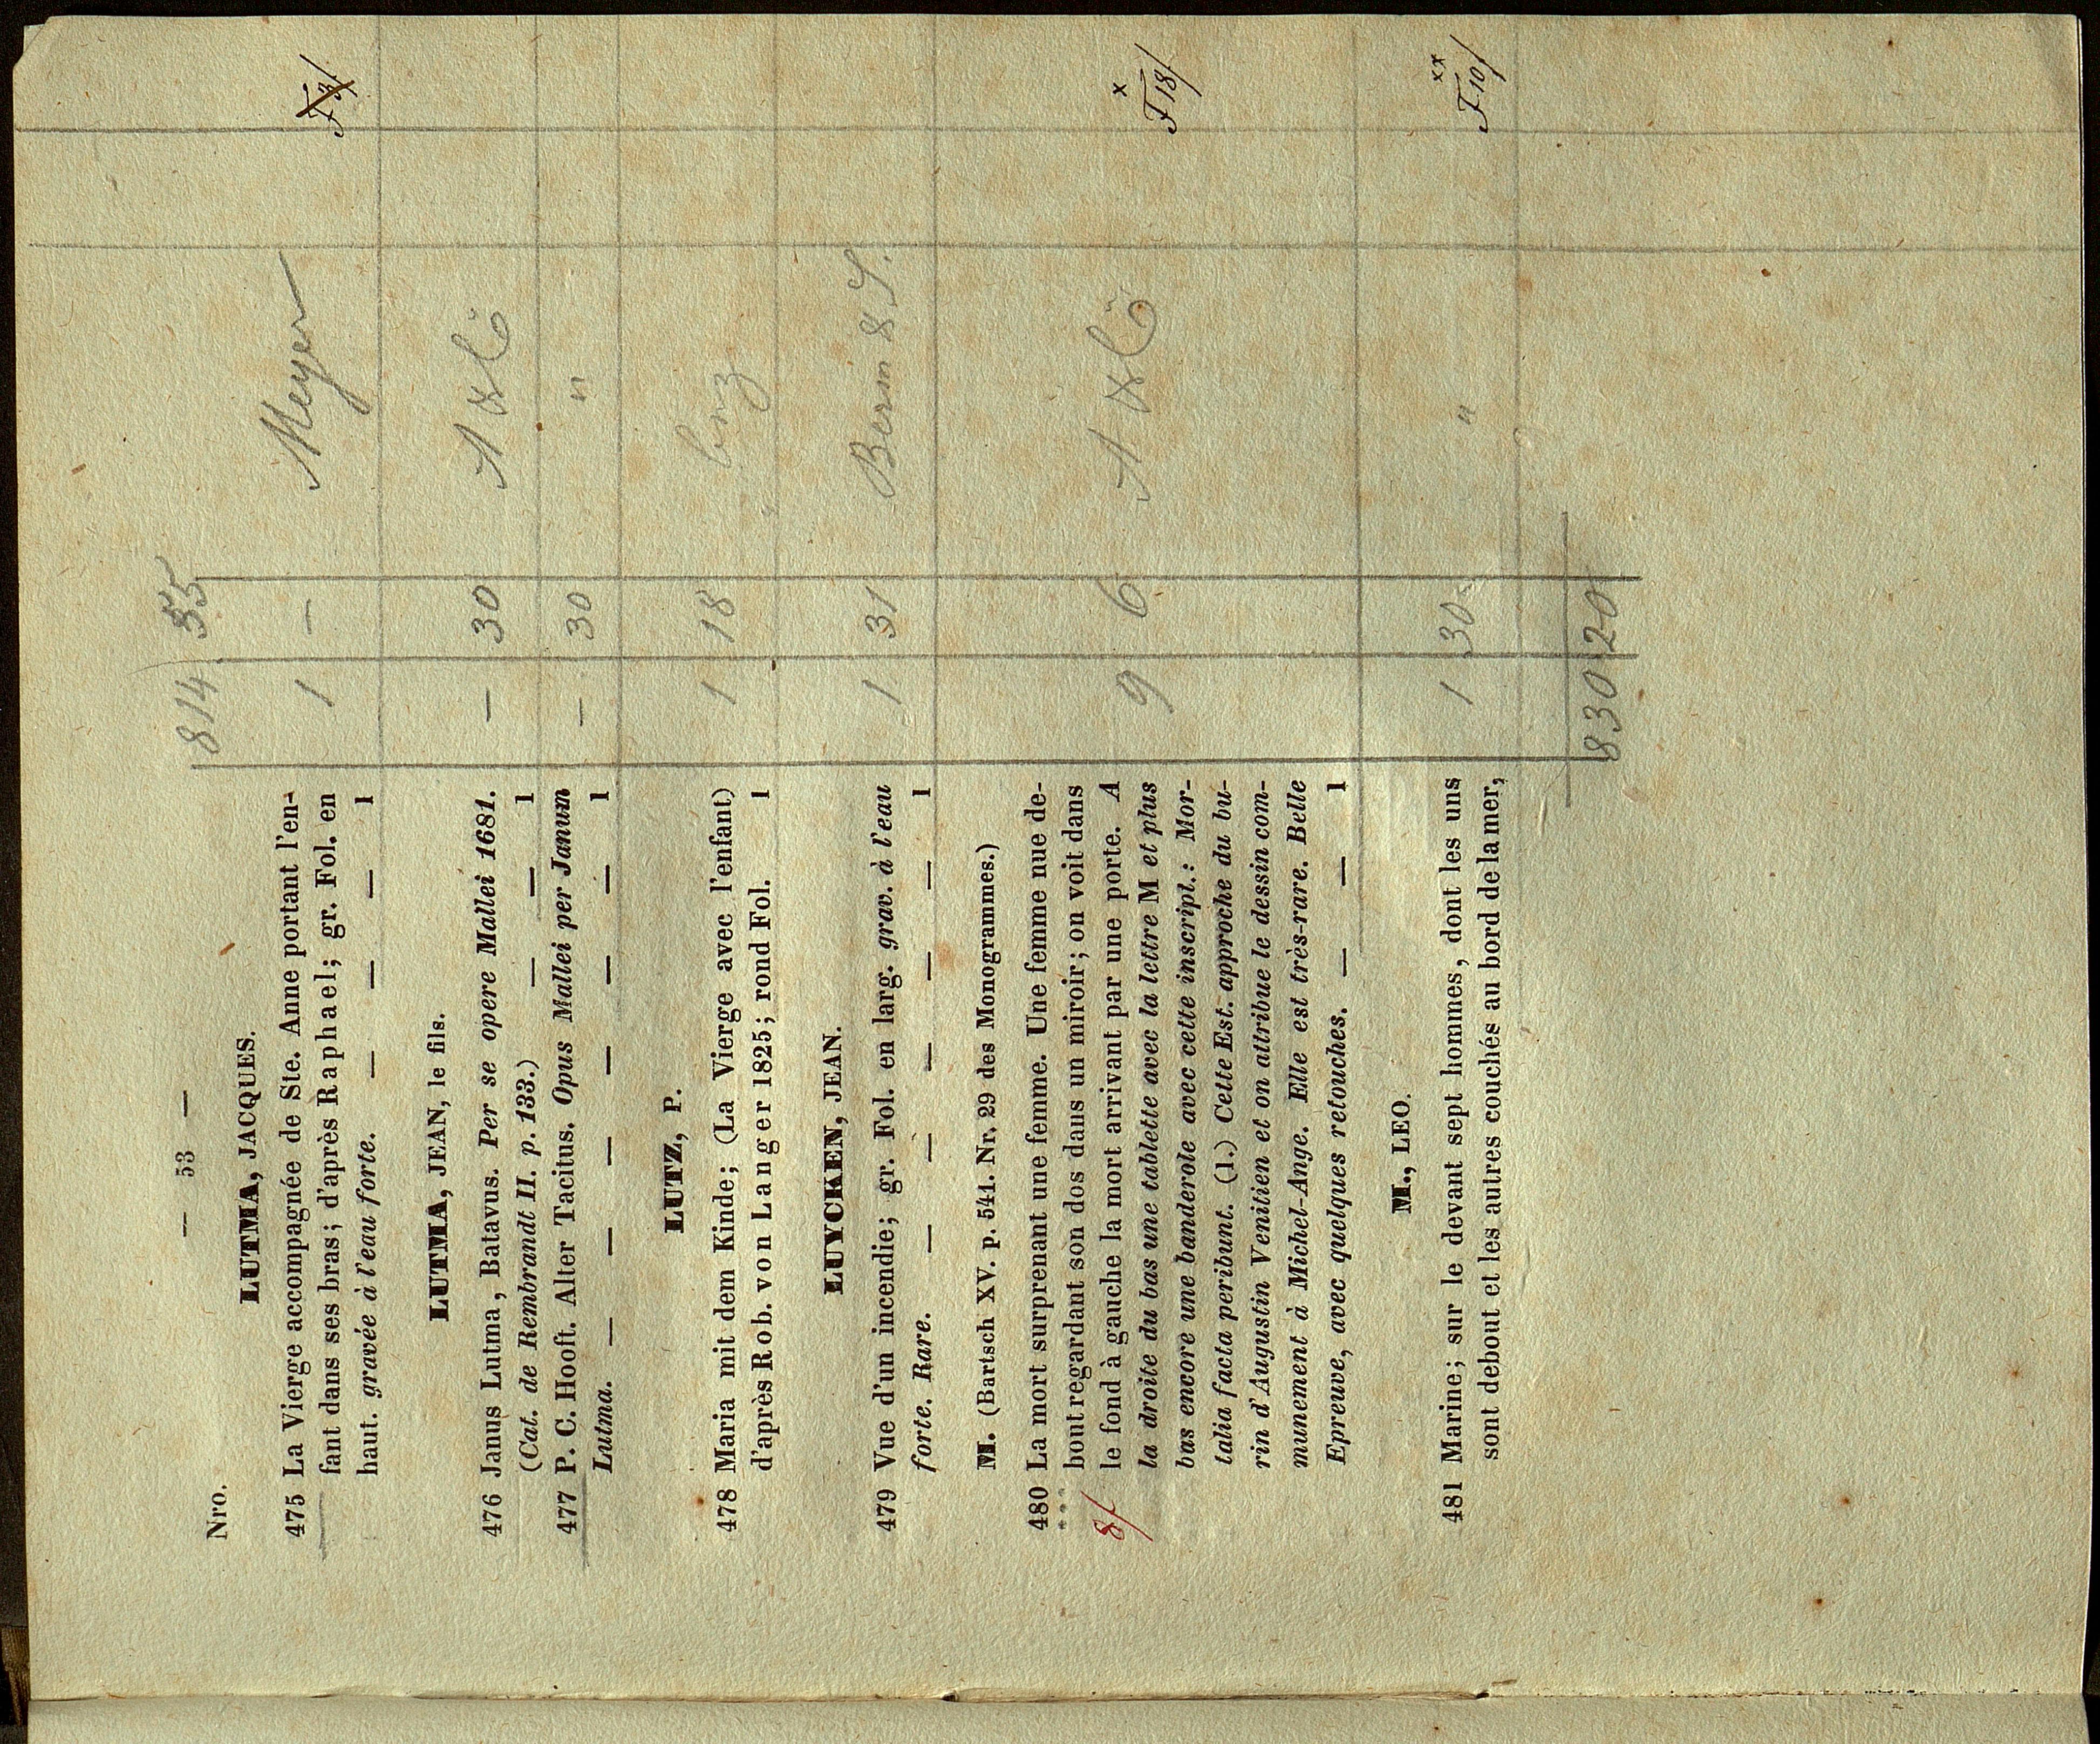 — 53 —
Nro.
814 55
LUTMA, JACQUES.
475 La Vierge accompagnée de Ste. Anne portant l'en-
fant dans ses bras; d'après Raphael; gr. Fol. en
haut. gravée à l'eau forte. — — — 1
1 — Meyer F3/
LUTMA, JEAN, le fils.
476 Janus Lutma, Batavus. Per se opere Mallei 1681.
(Cat. de Rembrandt II. p. 133.) — — 1
— 30
477 P. C. Hooft. Alter Tacitus. Opus Mallei per Janum
Lutma. — — — — — — 1
— 30 "
LUTZ, P.
478 Maria mit dem Kinde; (La Vierge avec l'enfant)
d'après Rob. von Langer 1825; rond Fol. 1
1 18
LUYCKEN, JEAN.
479 Vue d'un incendie; gr. Fol. en larg. grav. à l'eau
forte. Rare. — — — — — 1
1 31
M. (Bartsch XV. p. 541. Nr. 29 des Monogrammes.)
480 La mort surprenant une femme. Une femme nue de-
bout regardant son dos dans un miroir; on voit dans
le fond à gauche la mort arrivant par une porte. A
la droite du bas une tablette avec la lettre M et plus
bas encore une banderole avec cette inscript.: Mor-
talia facta peribunt. (1.) Cette Est. approche du bu-
rin d'Augustin Venitien et on attribue le dessin com-
munement à Michel-Ange. Elle est très-rare. Belle
Epreuve, avec quelques retouches. — — 1
8/
9 6
x
F18/
M., LEO.
481 Marine; sur le devant sept hommes, dont les uns
sont debout et les autres couchés au bord de la mer,
1 30 "
xx
F10/
830 20